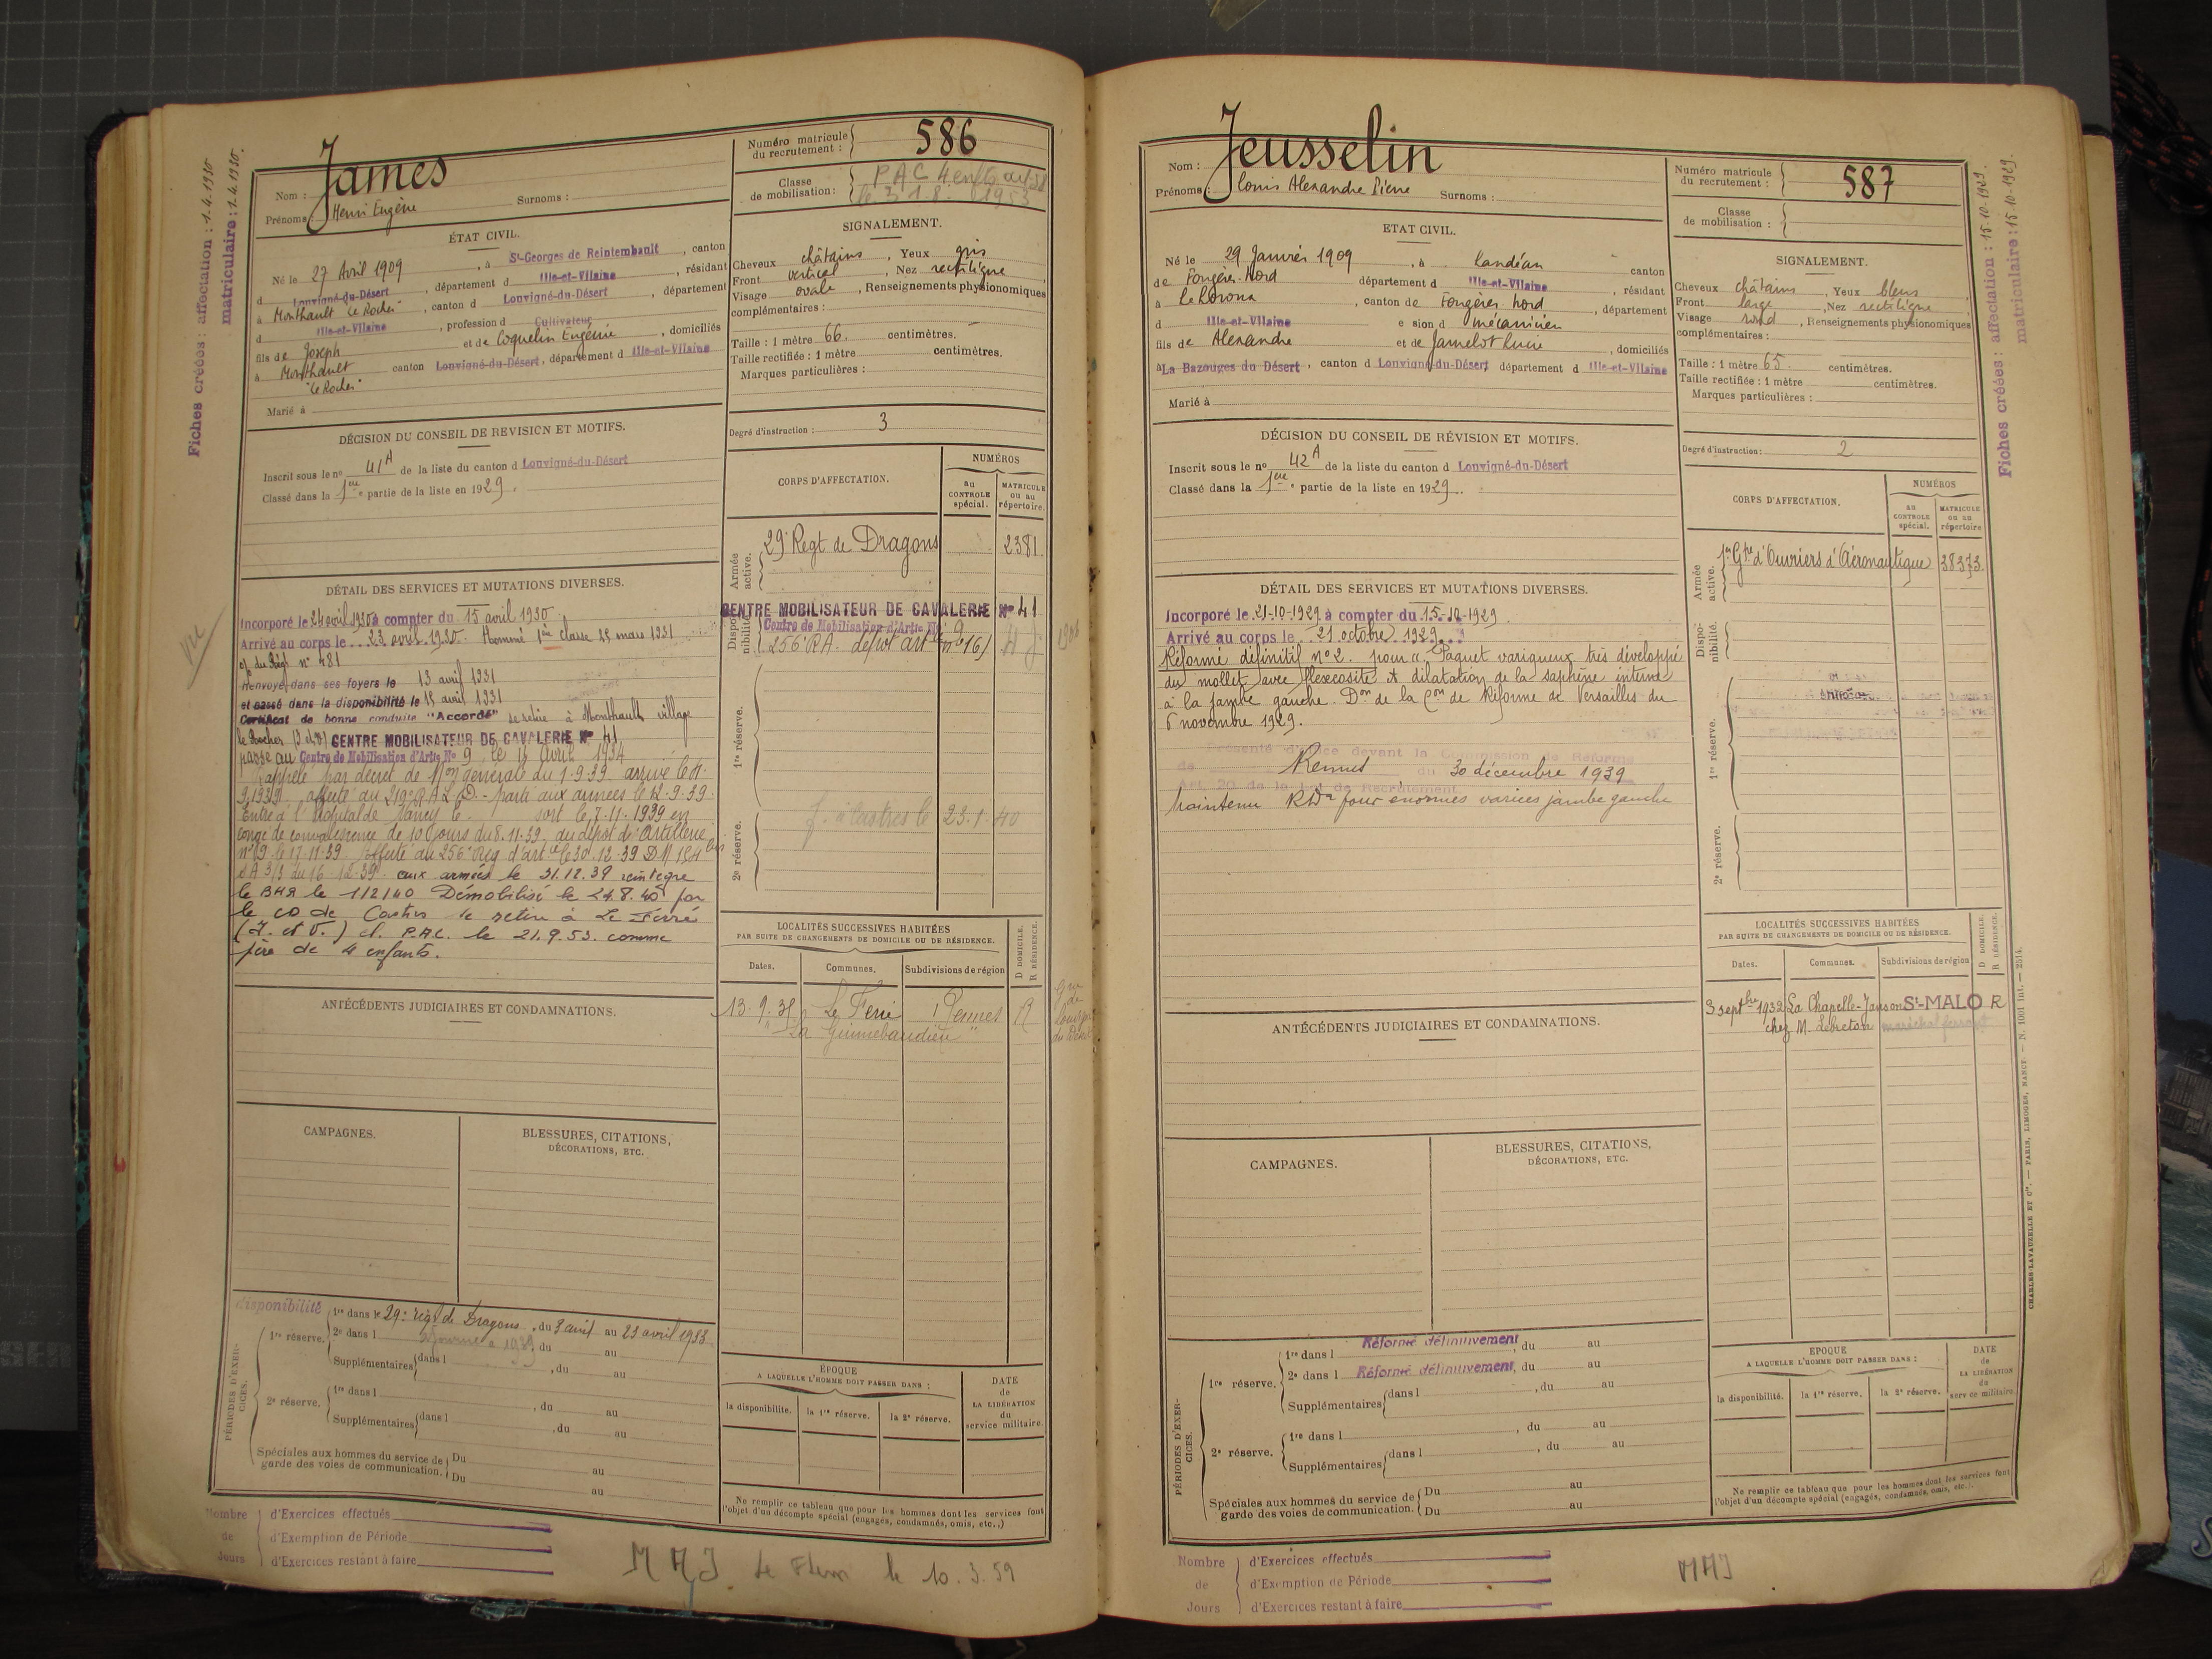 Fiches créées : affectation : 1.4.1930
matriculaire : 1.4.1930.
Nom : James
Prénoms : Henri Eugène Surnoms :
Numéro matricule du recrutement : 586
Classe de mobilisation : PAC 4 enf
ÉTAT CIVIL.
Né le 27 Avril 1909, à St-Georges de Reintembault, canton
d Louvigné-du-Désert, département d Ille-et-Vilaine, résidant
à Monthault Le Rocher, canton d Louvigné-du-Désert, département
d Ille-et-Vilaine, profession d Cultivateur
fils de Joseph et de Coquelin Eugénie, domiciliés
à Monthault canton Louvigné-du-Désert, département d Ille-et-Vilaine
"Le Rocher"
Marié à
SIGNALEMENT.
Cheveux châtains, Yeux gris
Front vertical, Nez rectiligne
Visage ovale, Renseignements physionomiques
complémentaires :
Taille : 1 mètre 66. centimètres.
Taille rectifiée : 1 mètre centimètres.
Marques particulières :
Degré d'instruction : 3
DÉCISION DU CONSEIL DE REVISION ET MOTIFS.
Inscrit sous le no 41A de la liste du canton d Louvigné-du-Désert
Classé dans la 1ère partie de la liste en 1929.
CORPS D'AFFECTATION.
NUMÉROS
au CONTROLE spécial.
MATRICULE ou au répertoire.
Armée active.
29e Regt de Dragons 2381.
CENTRE MOBILISATEUR DE CAVALERIE No 41
Disponibilité
Centre de Mobilisation d'Artie No 9
256e RA. dépôt art no 16
1re réserve.
2e réserve.
f. à Castres le 23.1.40
DÉTAIL DES SERVICES ET MUTATIONS DIVERSES.
Incorporé le 24 avril 1930 à compter du 15 avril 1930.
Arrivé au corps le 23 avril 1930. Nommé 1ère classe 25 mars 1931
of du Régt no 481
Renvoyé dans ses foyers le 13 avril 1931
et passé dans la disponibilité le 15 avril 1931
Certificat de bonne conduite "Accordé" se retire à Monthault village
le Rocher (I et V) CENTRE MOBILISATEUR DE CAVALERIE No 41
passé au Centre de Mobilisation d'Artie No 9 le 15 Avril 1934
Rappelé par décret de Mon générale du 1-9-39 arrivé le
9.1939 affecté au 219e R.A.L.D. - parti aux armées le 12-9-39
Entré à l'hôpital de Nancy le sorti le 7-11-1939 en
congé de convalescence de 10 jours du 8.11.39. au dépôt d'artillerie
no 19 le 17.11.39. Affecté au 256e Reg d'artie le 30.12.39 DM
du 16-12-39 aux armées le 31.12.39 réintègre
le BHR le 1/2/40 Démobilisé le 24.8.40 par
le CD de Castres se retire à Le Ferré
(I. et V.) cl. P.A.C. le 21.9.53. comme
père de 4 enfants.
LOCALITÉS SUCCESSIVES HABITÉES
PAR SUITE DE CHANGEMENTS DE DOMICILE OU DE RÉSIDENCE.
D DOMICILE. R RÉSIDENCE.
Dates. Communes. Subdivisions de région
Le Ferré Rennes R
ANTÉCÉDENTS JUDICIAIRES ET CONDAMNATIONS.
CAMPAGNES.
BLESSURES, CITATIONS,
DÉCORATIONS, ETC.
PÉRIODES D'EXERCICES.
disponibilité
1re réserve. 1re dans le 29e régt de Dragons, du 3 avril au 23 avril 1933
2e dans l du au
Supplémentaires dans l, du au
2e réserve. 1re dans l, du au
Supplémentaires dans l, du au
Spéciales aux hommes du service de garde des voies de communication. Du au
Du au
ÉPOQUE
A LAQUELLE L'HOMME DOIT PASSER DANS :
la disponibilité. la 1re réserve. la 2e réserve.
DATE de LA LIBÉRATION du service militaire.
Ne remplir ce tableau que pour les hommes dont les services font
l'objet d'un décompte spécial (engagés, condamnés, omis, etc.,)
Nombre de Jours
d'Exercices effectués
d'Exemption de Période
d'Exercices restant à faire
le 10.3.59
Nom : Jeusselin
Prénoms : Louis Alexandre Pierre Surnoms :
Numéro matricule du recrutement : 587
Classe de mobilisation :
Fiches créées : affectation : 15-10-1929.
matriculaire : 15-10-1929.
ETAT CIVIL.
Né le 29 Janvier 1909, à Landéan canton
de Fougères-Nord département d Ille-et-Vilaine, résidant
à , canton de Fougères Nord, département
d Ille-et-Vilaine e sion d mécanicien
fils de Alexandre et de Jamelot Lucie, domiciliés
à La Bazouges du Désert, canton d Louvigné-du-Désert, département d Ille-et-Vilaine
Marié à
SIGNALEMENT.
Cheveux châtains, Yeux bleus
Front large, Nez rectiligne
Visage rond, Renseignements physionomiques
complémentaires :
Taille : 1 mètre 65. centimètres.
Taille rectifiée : 1 mètre centimètres.
Marques particulières :
Degré d'instruction : 2
DÉCISION DU CONSEIL DE RÉVISION ET MOTIFS.
Inscrit sous le no 42A de la liste du canton d Louvigné-du-Désert
Classé dans la 1ère partie de la liste en 1929.
CORPS D'AFFECTATION.
NUMÉROS
au CONTROLE spécial.
MATRICULE ou au répertoire
Armée active.
1er Gpe d'Ouvriers d'Aéronautique 38373.
Disponibilité.
1re réserve.
2e réserve.
DÉTAIL DES SERVICES ET MUTATIONS DIVERSES.
Incorporé le 21-10-1929 à compter du 15-10-1929.
Arrivé au corps le 21 octobre 1929.
Réformé définitif no 2. pour "Paquet variqueux très développé
du mollet avec flexcosité et dilatation de la saphène interne
à la jambe gauche. Don de la Con de Réforme de Versailles du
6 novembre 1929.
Présenté d'office devant la Commission de Réforme
de Rennes du 30 décembre 1939
Art. 20 de la Loi de Recrutement
Maintenu RD2 pour énormes varices jambe gauche
LOCALITÉS SUCCESSIVES HABITÉES
PAR SUITE DE CHANGEMENTS DE DOMICILE OU DE RÉSIDENCE.
D DOMICILE. R RÉSIDENCE.
Dates. Communes. Subdivisions de région
3 septbre 1932 La Chapelle-Janson St-MALO R
chez M. Lebreton maréchal ferrant
ANTÉCÉDENTS JUDICIAIRES ET CONDAMNATIONS.
CAMPAGNES.
BLESSURES, CITATIONS,
DÉCORATIONS, ETC.
PÉRIODES D'EXERCICES.
1re réserve. 1re dans l Réformé définitivement, du au
2e dans l Réformé définitivement, du au
Supplémentaires dans l, du au
2e réserve. 1re dans l, du au
Supplémentaires dans l, du au
Spéciales aux hommes du service de garde des voies de communication. Du au
Du au
EPOQUE
A LAQUELLE L'HOMME DOIT PASSER DANS :
la disponibilité. la 1re réserve. la 2e réserve.
DATE de LA LIBÉRATION du service militaire.
Ne remplir ce tableau que pour les hommes dont les services font
l'objet d'un décompte spécial (engagés, condamnés, omis, etc.).
CHARLES-LAVAUZELLE ET Cie. — PARIS, LIMOGES, NANCY. — N. 1001 Int. — 2514.
Nombre de Jours
d'Exercices effectués
d'Exemption de Période
d'Exercices restant à faire